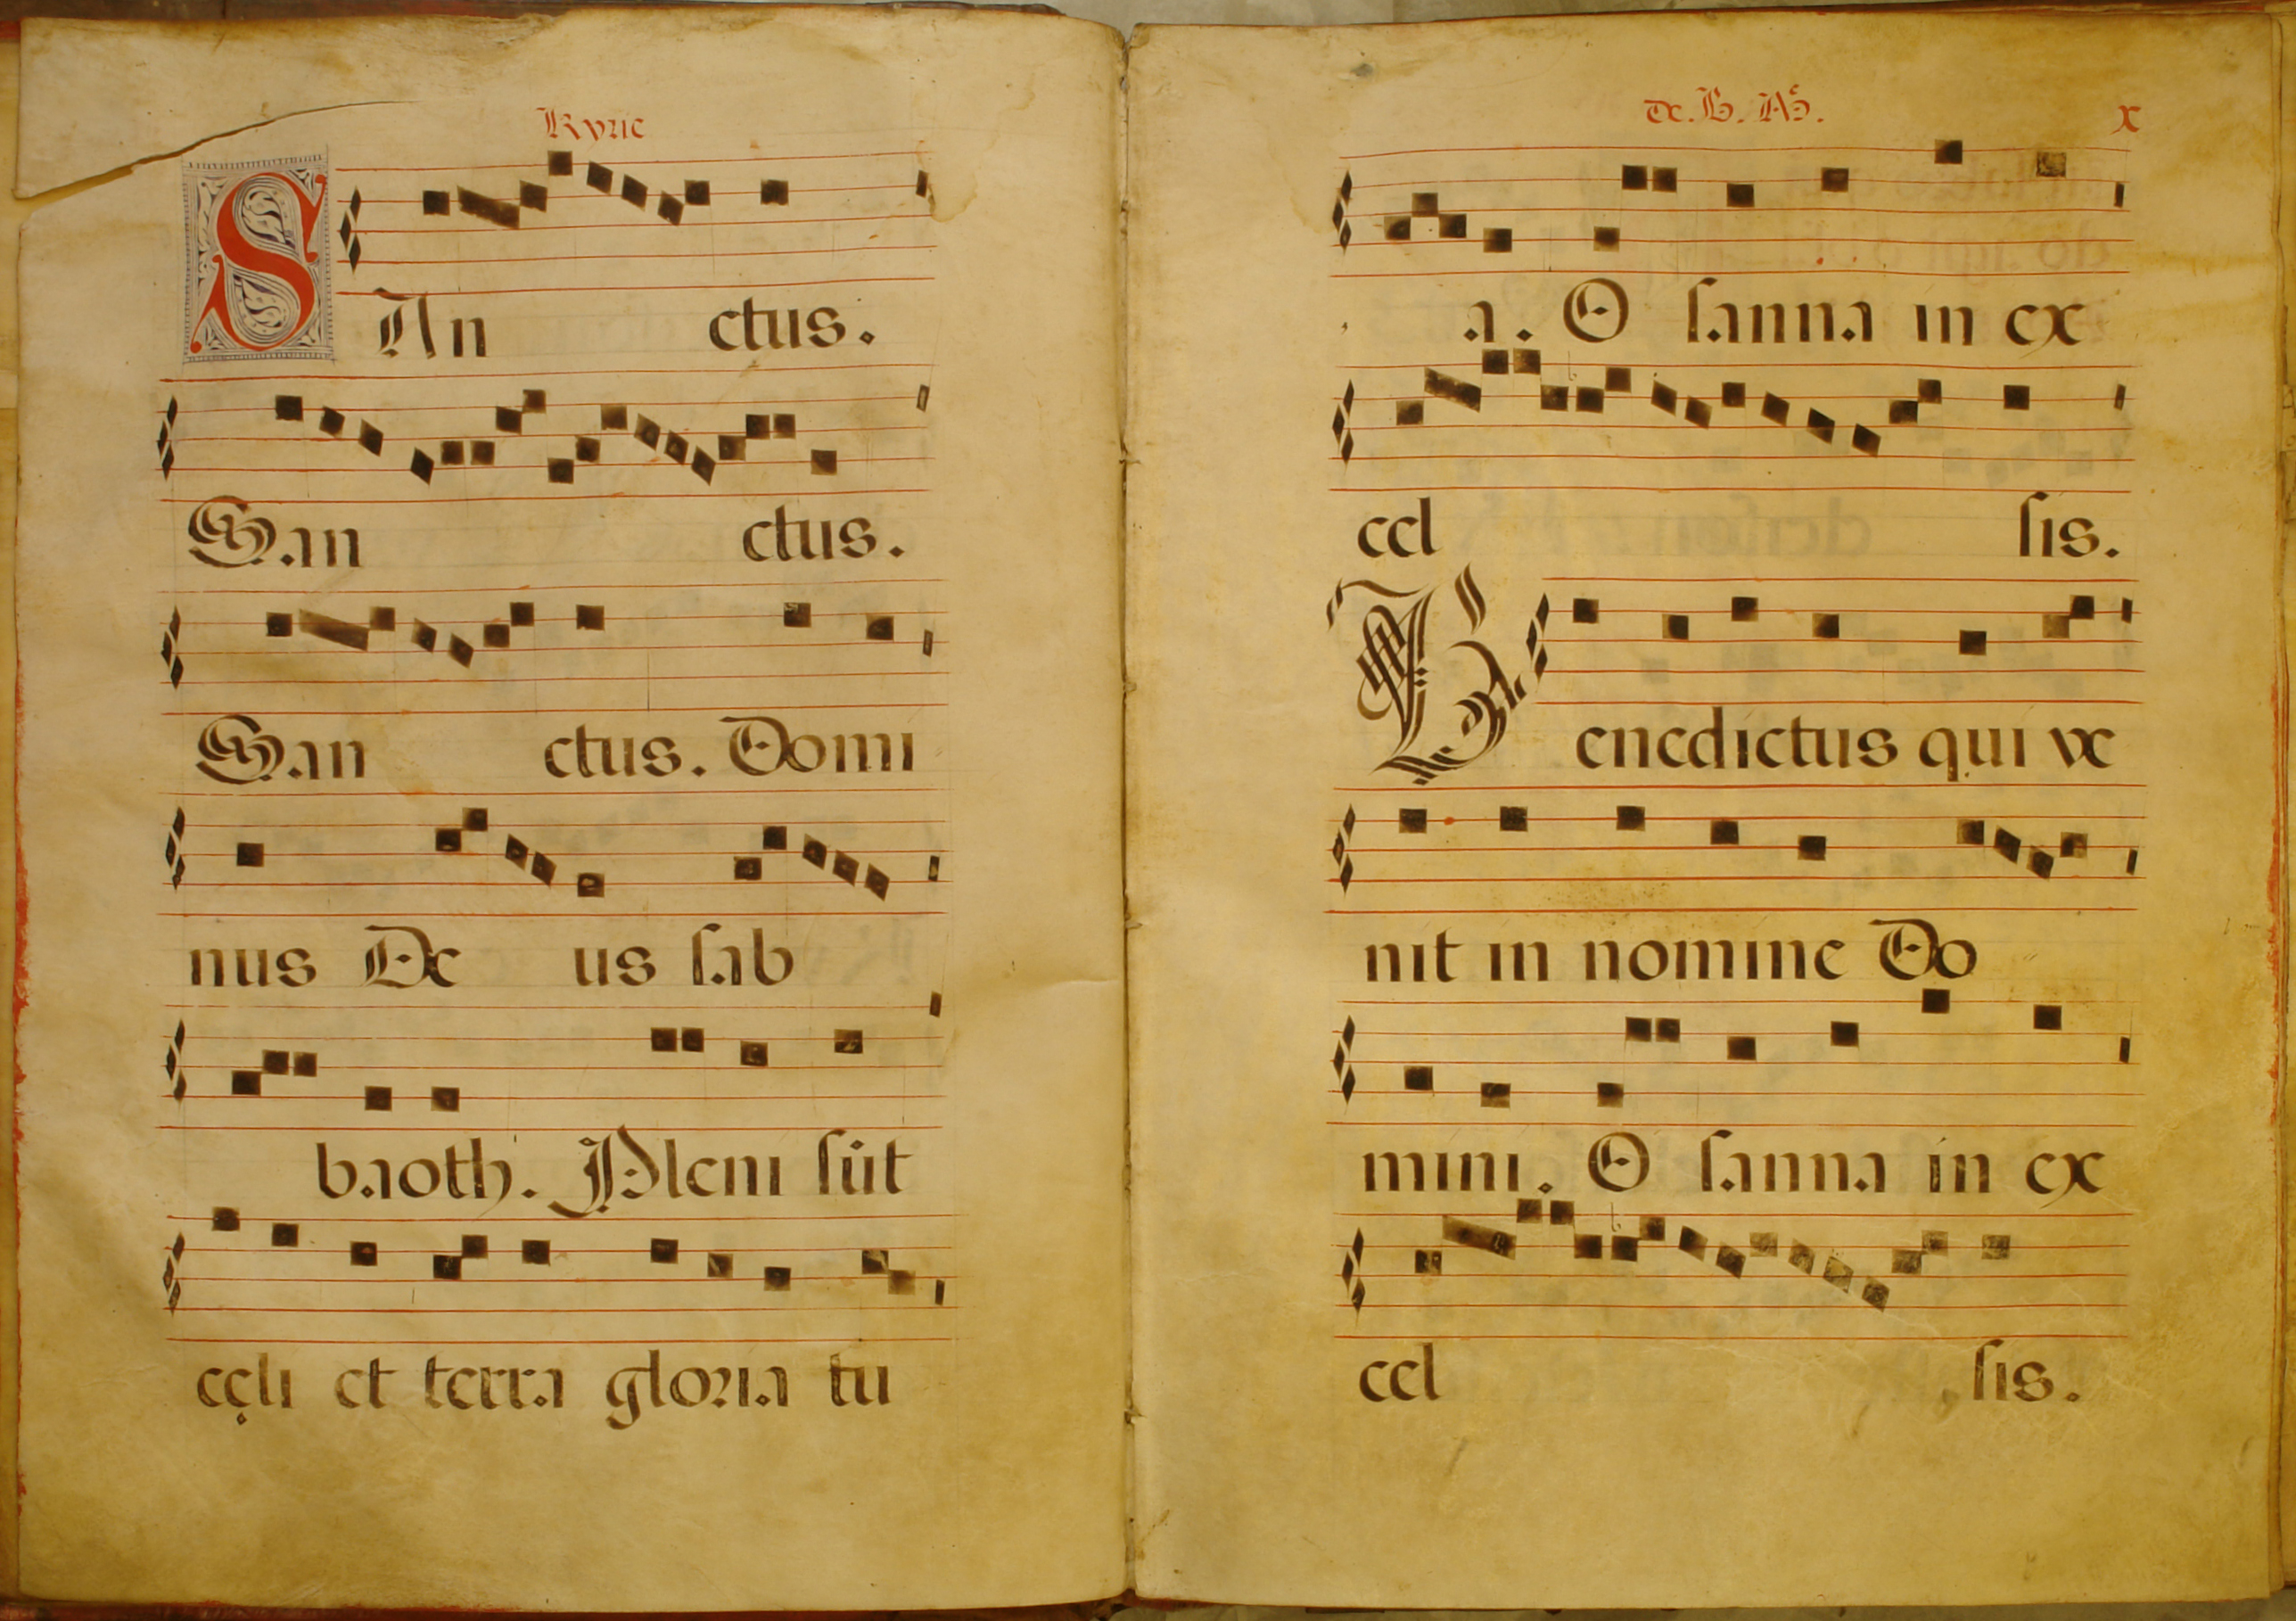 Kyrie
SAn ctus.
San ctus.
San ctus. Domi
nus De us sab
baoth. Pleni sūt
cęli et terra gloria tu
de. B. Mᵉ. x
a. O sanna in ex
cel sis.
Benedictus qui ve
nit in nomine Do
mini. O sanna in ex
cel sis.